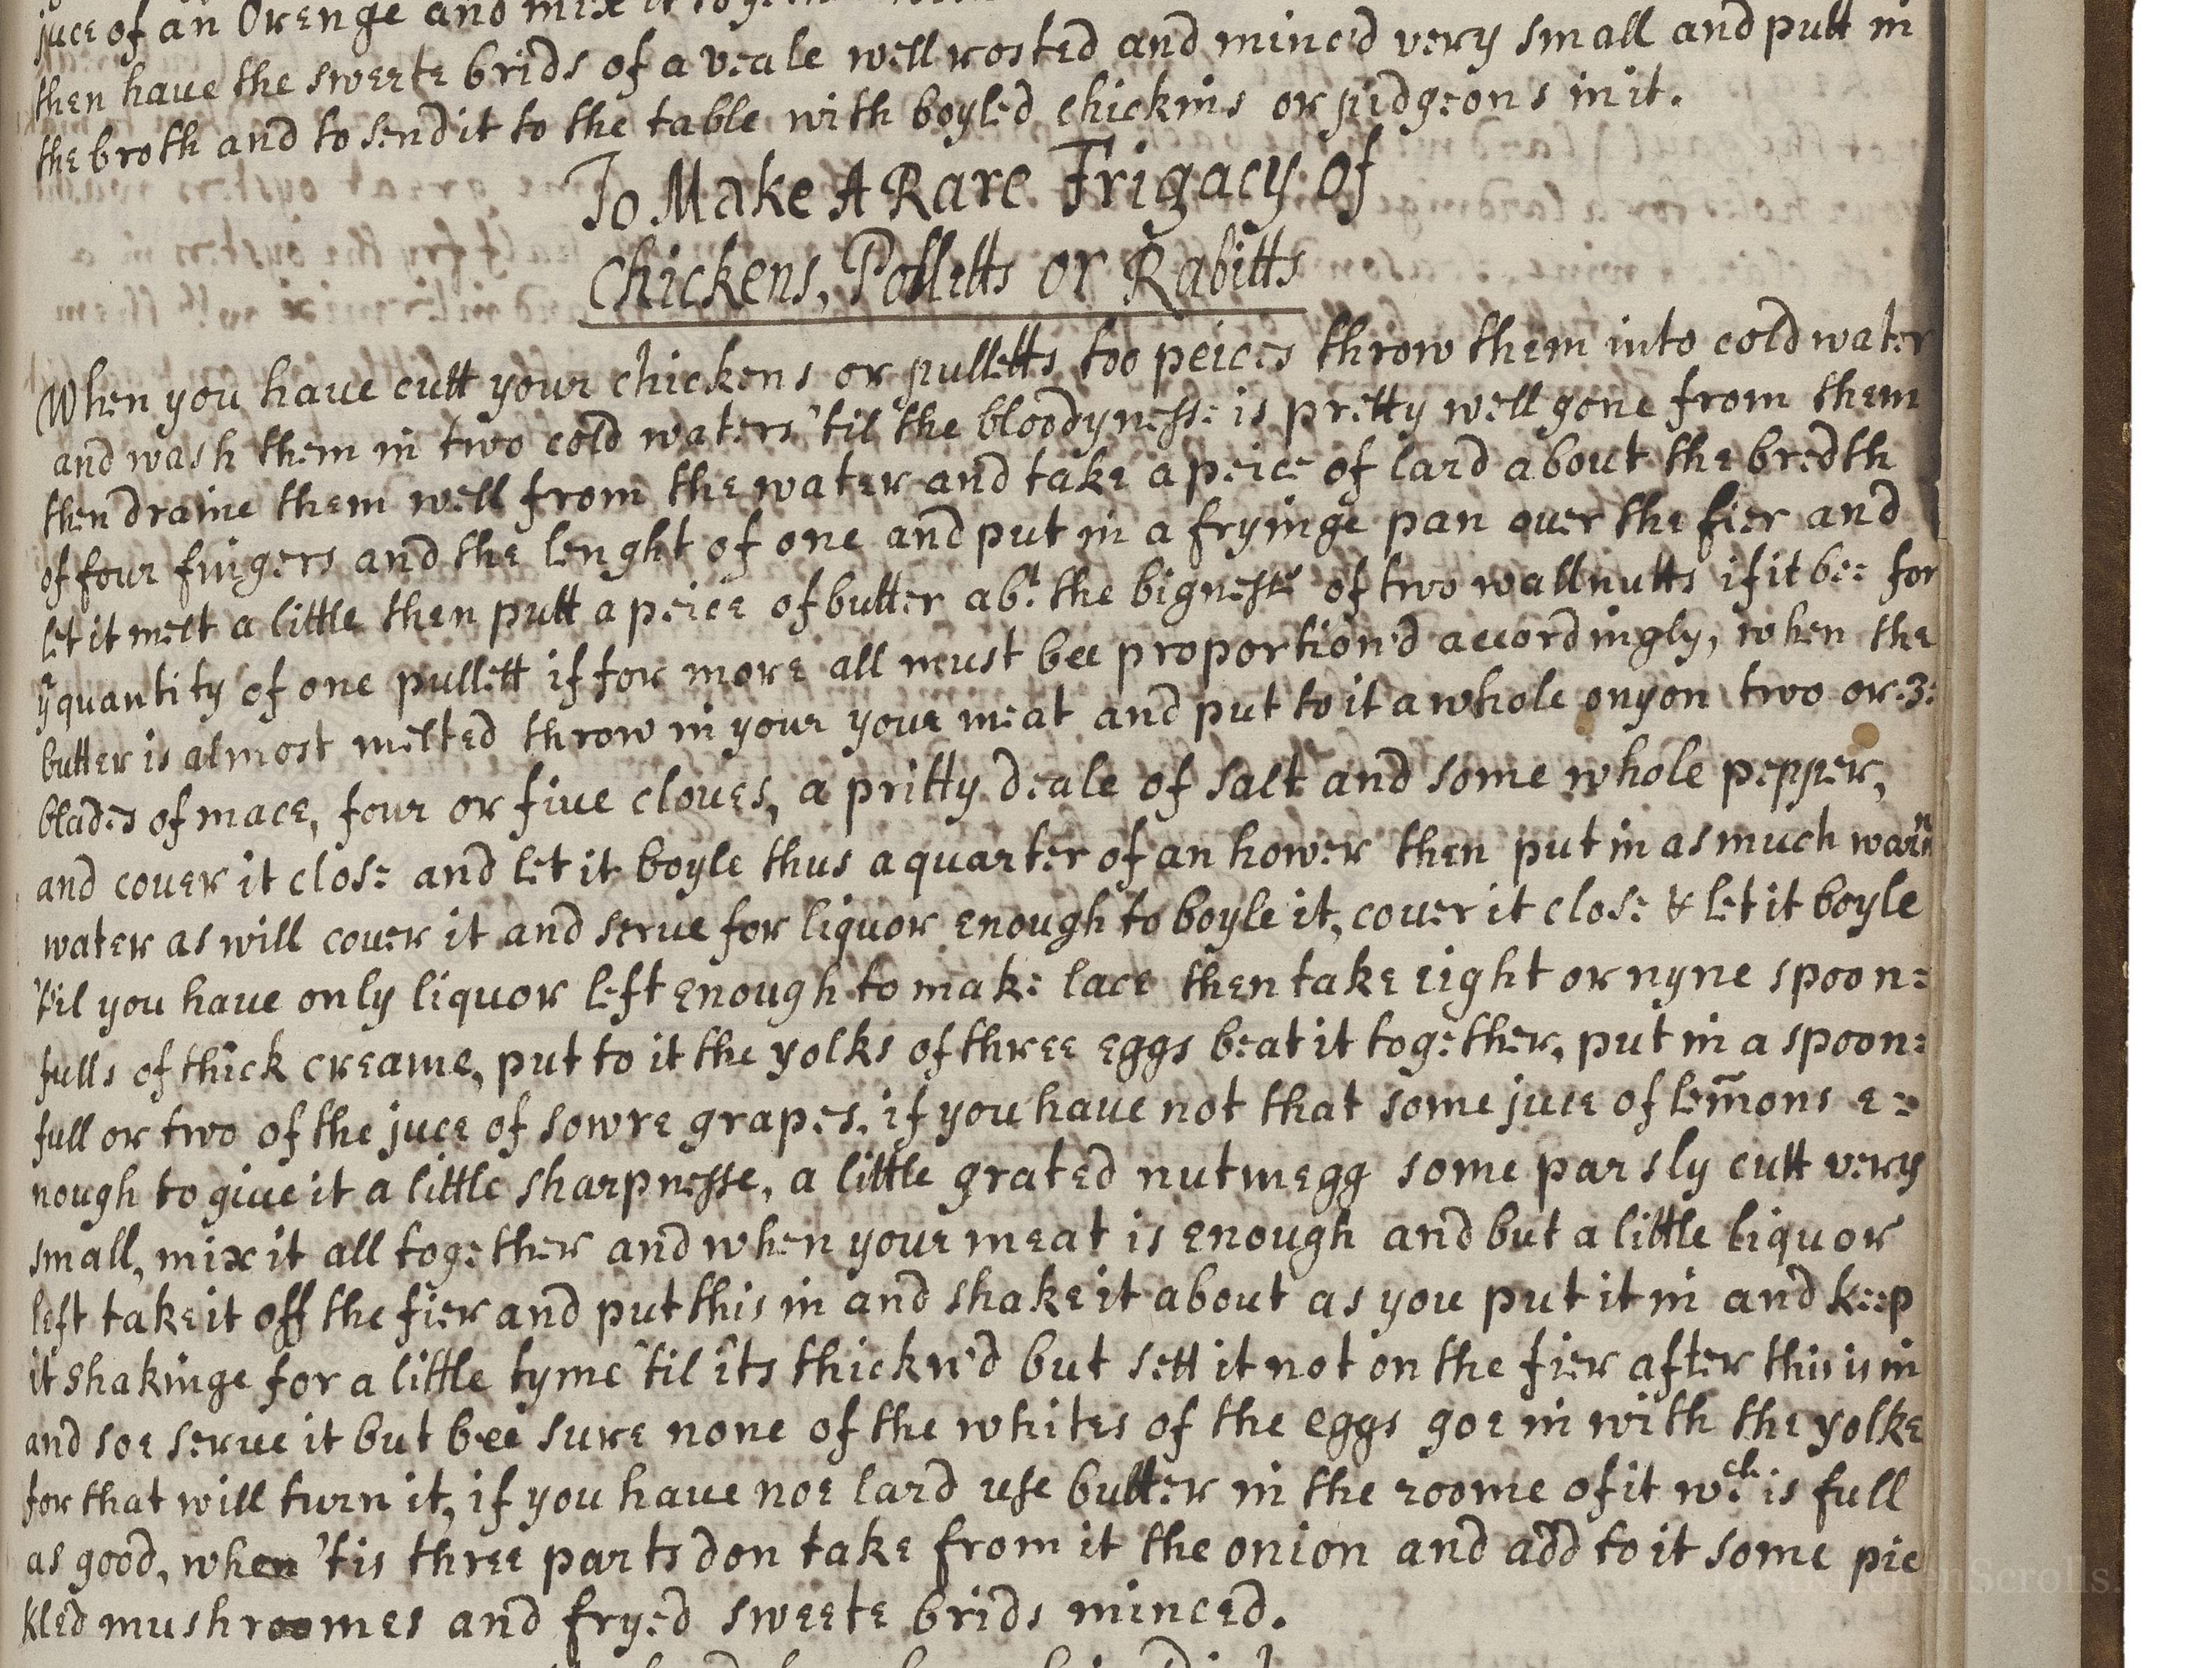 juce of an Orenge and mix it
then have the sweete brids of a veale well rosted and minc'd very small and putt in
the broth and to send it to the table with boyled chickins or pidgeons in it.
To Make A Rare Frigacy of
Chickens, Polletts or Rabitts
When you have cutt your chickens or pulletts too peices throw them into cold water
and wash them in two cold waters 'til the bloodynesse is pretty well gone from them
then draine them well from the water and take a peice of lard about the bredth
of four fingers and the lenght of one and put in a fryinge pan over the fier and
let it melt a little then putt a peice of butter abt. the bignesse of two wallnutts if it bee for
ye quantity of one pullett if for more all must bee proportion'd accordingly, when the
butter is almost melted throw in your your meat and put to it a whole onyon two or 3:
blades of mace, four or five cloves, a pritty deale of salt and some whole pepper,
and cover it close and let it boyle thus a quarter of an hower then put in as much warm
water as will cover it and serve for liquor enough to boyle it, cover it close & let it boyle
'til you have only liquor left enough to make lace then take eight or nyne spoon:
fulls of thick creame, put to it the yolks of three eggs beat it together, put in a spoon:
full or two of the juce of sowre grapes. if you have not that some juce of lem̄ons e:
nough to give it a little sharpnesse, a little grated nutmegg some parsly cutt very
small, mix it all together and when your meat is enough and but a little liquor
left take it off the fier and put this in and shake it about as you put it in and keep
it shakinge for a little tyme 'til its thickn'd but sett it not on the fier after this is in
and soe serve it but bee sure none of the whites of the eggs goe in with the yolke
for that will turn it, if you have noe lard use butter in the roome of it wch. is full
as good, when 'tis three parts don take from it the onion and add to it some pic
kled mushroomes and fryed sweete brids minced.